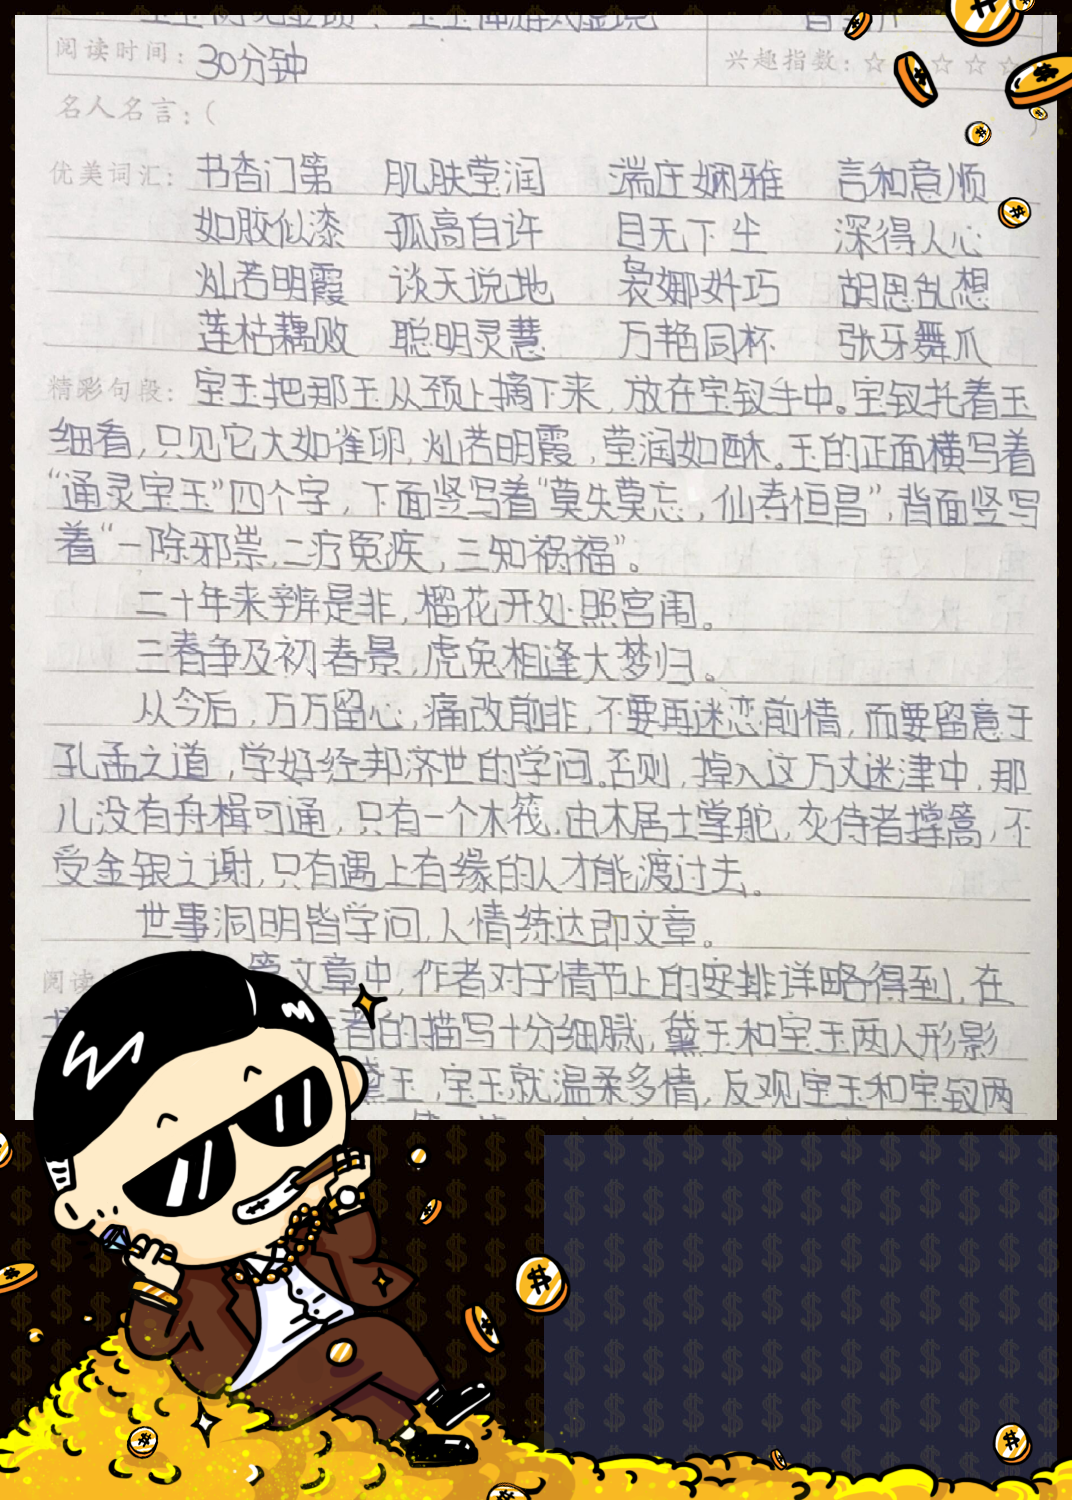 阅读时间：30分钟
兴趣指数：☆ ☆ ☆ ☆
名人名言：（ ）
优美词汇：书香门第 肌肤莹润 端庄娴雅 言和意顺
如胶似漆 孤高自许 目无下尘 深得人心
灿若明霞 谈天说地 袅娜奸巧 胡思乱想
莲枯藕败 聪明灵慧 万艳同杯 张牙舞爪
精彩句段：宝玉把那玉从颈上摘下来，放在宝钗手中。宝钗托着玉
细看，只见它大如雀卵，灿若明霞，莹润如酥。玉的正面横写着
“通灵宝玉”四个字，下面竖写着“莫失莫忘，仙寿恒昌”，背面竖写
着“一除邪祟，二疗冤疾，三知祸福”。
二十年来辨是非，榴花开处照宫闱。
三春争及初春景，虎兔相逢大梦归。
从今后，万万留心，痛改前非，不要再迷恋前情，而要留意于
孔孟之道，学好经邦济世的学问。否则，掉入这万丈迷津中，那
儿没有舟楫可通，只有一个木筏，由木居士掌舵，灰侍者撑篙，不
受金银之谢，只有遇上有缘的人才能渡过去。
世事洞明皆学问，人情练达即文章。
阅读 篇文章中，作者对于情节上的安排详略得到，在
者的描写十分细腻，黛玉和宝玉两人形影
黛玉，宝玉就温柔多情，反观宝玉和宝钗两